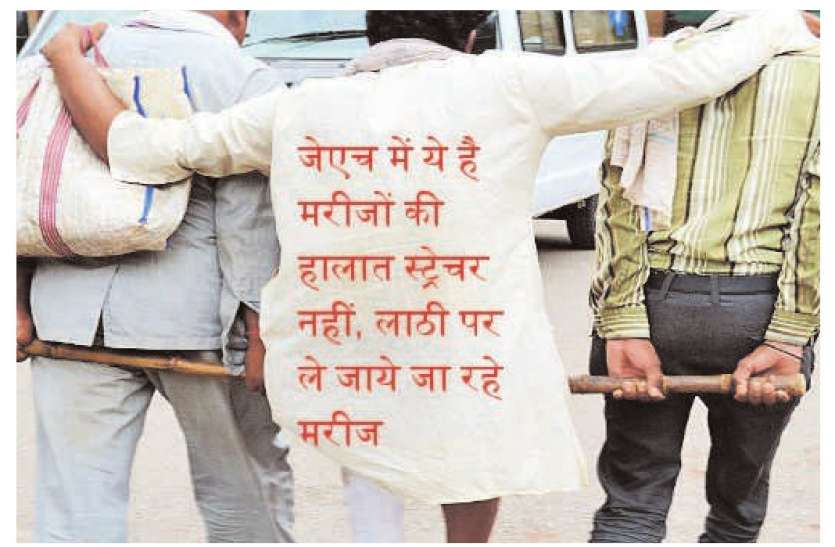 जेएच में ये है
मरीजों की
हालात स्ट्रेचर
नहीं, लाठी पर
ले जाये जा रहे
मरीज